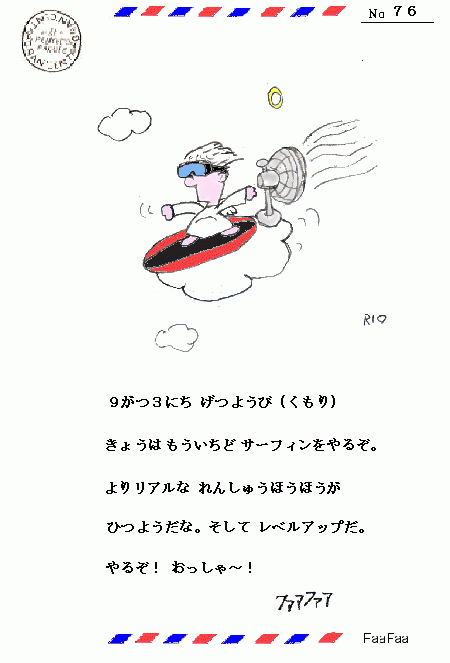 No 76
RIO
9がつ3にち げつようび (くもり)
きょうは もういちど サーフィンをやるぞ。
より リアルな れんしゅうほうほうが
ひつようだな。そして レベルアップだ。
やるぞ! おっしゃ～!
ファァファァ
FaaFaa